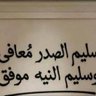 سليم الصدر مُعافى
وسليم النيه موفق